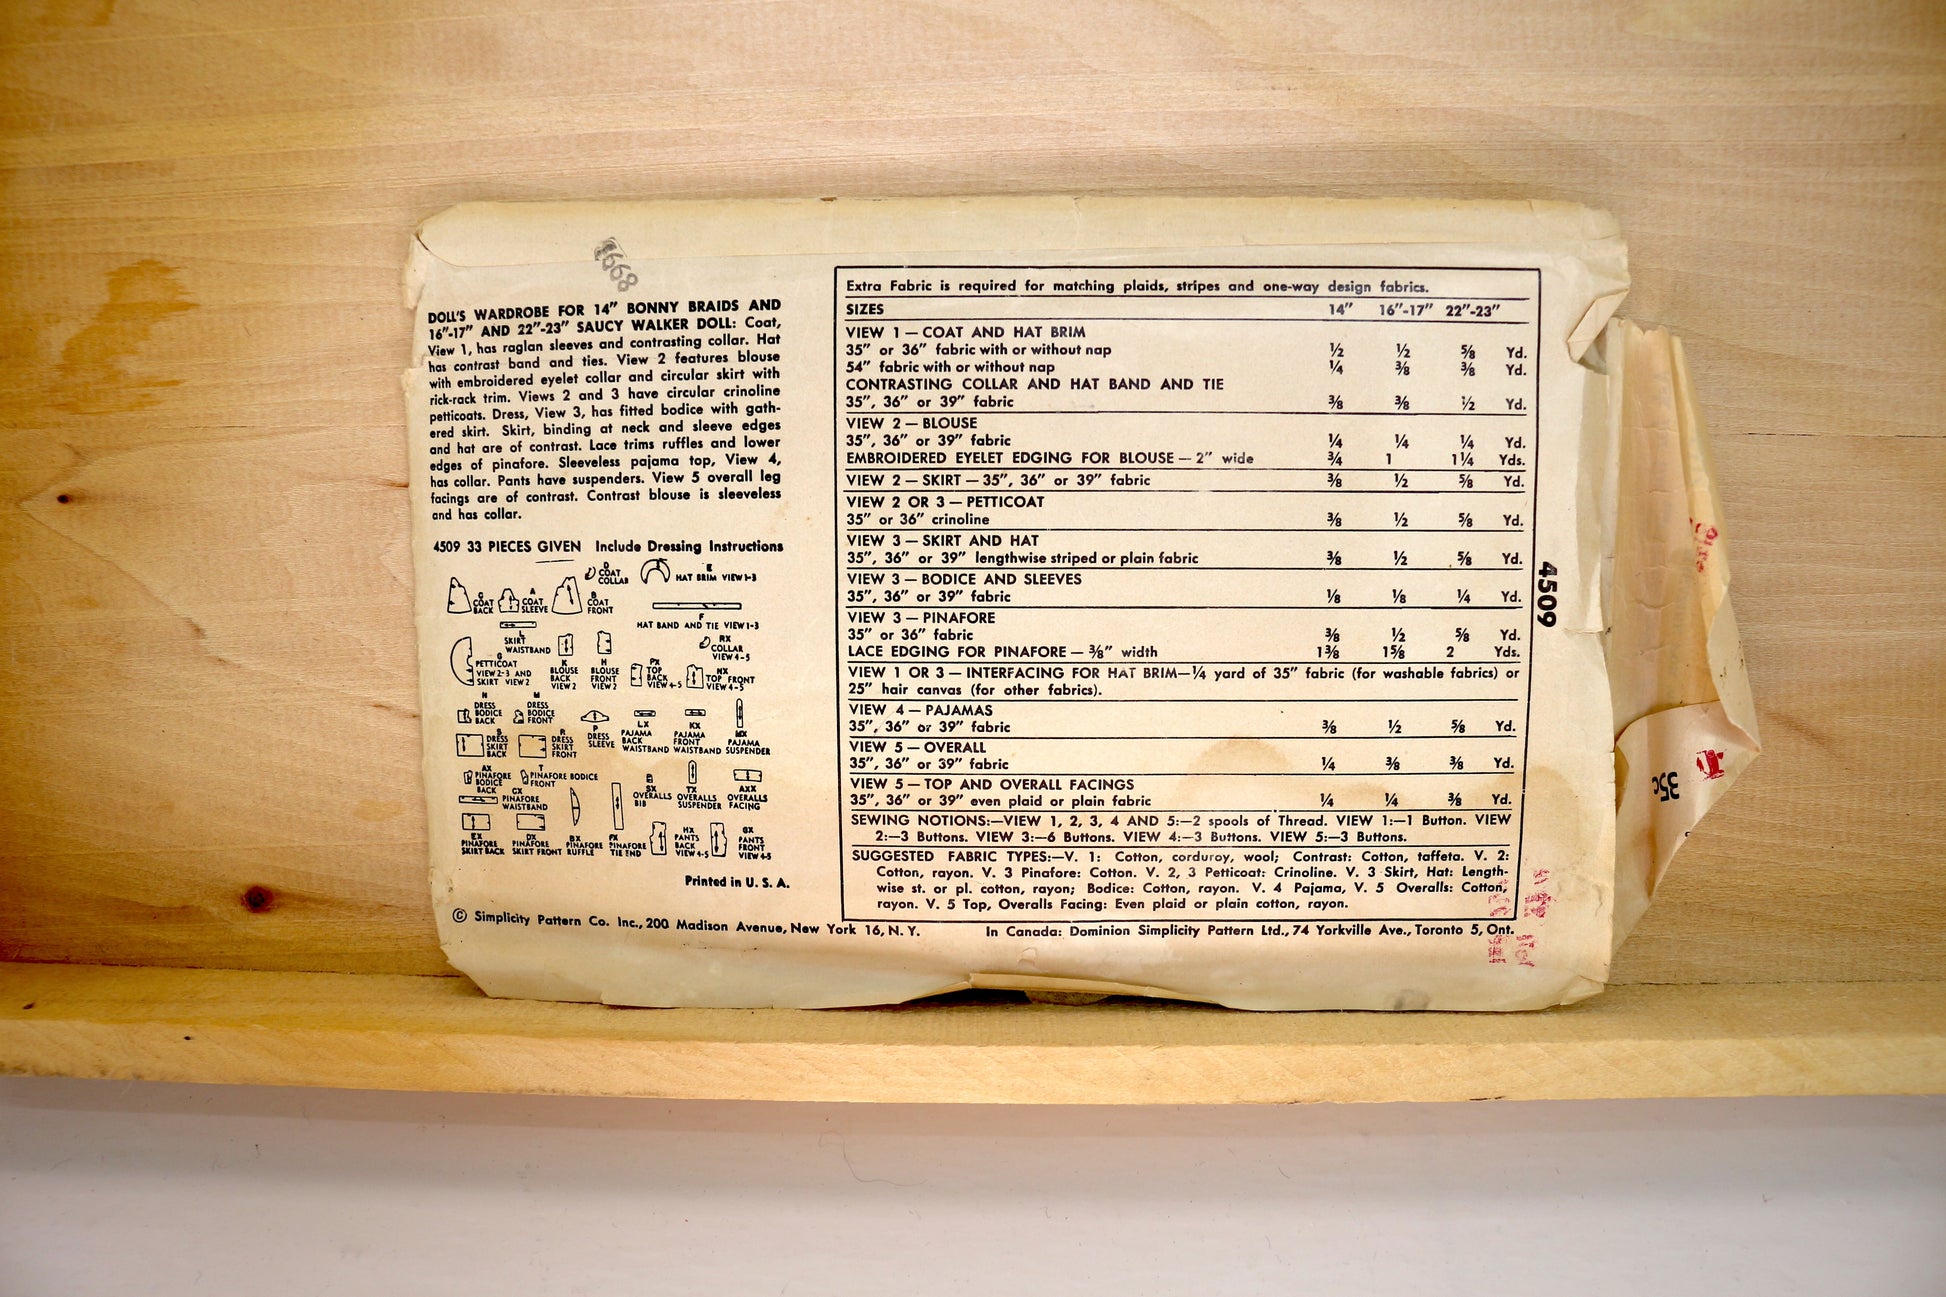 8991
DOLL'S WARDROBE FOR 14" BONNY BRAIDS AND
16"-17" AND 22"-23" SAUCY WALKER DOLL: Coat,
View 1, has raglan sleeves and contrasting collar. Hat
has contrast band and ties. View 2 features blouse
with embroidered eyelet collar and circular skirt with
rick-rack trim. Views 2 and 3 have circular crinoline
petticoats. Dress, View 3, has fitted bodice with gath-
ered skirt. Skirt, binding at neck and sleeve edges
and hat are of contrast. Lace trims ruffles and lower
edges of pinafore. Sleeveless pajama top, View 4,
has collar. Pants have suspenders. View 5 overall leg
facings are of contrast. Contrast blouse is sleeveless
and has collar.
4509 33 PIECES GIVEN Include Dressing Instructions
D COAT COLLAR
E HAT BRIM VIEW 1-3
COAT BACK
A COAT SLEEVE
B COAT FRONT
F HAT BAND AND TIE VIEW 1-3
L SKIRT WAISTBAND
RX COLLAR VIEW 4-5
G PETTICOAT VIEW 2-3 AND SKIRT VIEW 2
K BLOUSE BACK VIEW 2
H BLOUSE FRONT VIEW 2
PX TOP BACK VIEW 4-5
NX TOP FRONT VIEW 4-5
N DRESS BODICE BACK
M DRESS BODICE FRONT
P DRESS SLEEVE
LX PAJAMA BACK WAISTBAND
KX PAJAMA FRONT WAISTBAND
MX PAJAMA SUSPENDER
S DRESS SKIRT BACK
R DRESS SKIRT FRONT
AX PINAFORE BODICE BACK
T PINAFORE BODICE FRONT
CX PINAFORE WAISTBAND
SX OVERALLS BIB
TX OVERALLS SUSPENDER
AXX OVERALLS FACING
EX PINAFORE SKIRT BACK
DX PINAFORE SKIRT FRONT
BX PINAFORE RUFFLE
FX PINAFORE TIE END
HX PANTS BACK VIEW 4-5
GX PANTS FRONT VIEW 4-5
Printed in U. S. A.
Extra Fabric is required for matching plaids, stripes and one-way design fabrics.
SIZES 14" 16"-17" 22"-23"
VIEW 1 — COAT AND HAT BRIM
35" or 36" fabric with or without nap ½ ½ ⅝ Yd.
54" fabric with or without nap ¼ ⅜ ⅜ Yd.
CONTRASTING COLLAR AND HAT BAND AND TIE
35", 36" or 39" fabric ⅜ ⅜ ½ Yd.
VIEW 2 — BLOUSE
35", 36" or 39" fabric ¼ ¼ ¼ Yd.
EMBROIDERED EYELET EDGING FOR BLOUSE — 2" wide ¾ 1 1¼ Yds.
VIEW 2 — SKIRT — 35", 36" or 39" fabric ⅜ ½ ⅝ Yd.
VIEW 2 OR 3 — PETTICOAT
35" or 36" crinoline ⅜ ½ ⅝ Yd.
VIEW 3 — SKIRT AND HAT
35", 36" or 39" lengthwise striped or plain fabric ⅜ ½ ⅝ Yd.
VIEW 3 — BODICE AND SLEEVES
35", 36" or 39" fabric ⅛ ⅛ ¼ Yd.
VIEW 3 — PINAFORE
35" or 36" fabric ⅜ ½ ⅝ Yd.
LACE EDGING FOR PINAFORE — ⅜" width 1⅜ 1⅝ 2 Yds.
VIEW 1 OR 3 — INTERFACING FOR HAT BRIM—¼ yard of 35" fabric (for washable fabrics) or
25" hair canvas (for other fabrics).
VIEW 4 — PAJAMAS
35", 36" or 39" fabric ⅜ ½ ⅝ Yd.
VIEW 5 — OVERALL
35", 36" or 39" fabric ¼ ⅜ ⅜ Yd.
VIEW 5 — TOP AND OVERALL FACINGS
35", 36" or 39" even plaid or plain fabric ¼ ¼ ⅜ Yd.
SEWING NOTIONS:—VIEW 1, 2, 3, 4 AND 5:—2 spools of Thread. VIEW 1:—1 Button. VIEW
2:—3 Buttons. VIEW 3:—6 Buttons. VIEW 4:—3 Buttons. VIEW 5:—3 Buttons.
SUGGESTED FABRIC TYPES:—V. 1: Cotton, corduroy, wool; Contrast: Cotton, taffeta. V. 2:
Cotton, rayon. V. 3 Pinafore: Cotton. V. 2, 3 Petticoat: Crinoline. V. 3 Skirt, Hat: Length-
wise st. or pl. cotton, rayon; Bodice: Cotton, rayon. V. 4 Pajama, V. 5 Overalls: Cotton,
rayon. V. 5 Top, Overalls Facing: Even plaid or plain cotton, rayon.
4509
35c
© Simplicity Pattern Co. Inc., 200 Madison Avenue, New York 16, N. Y. In Canada: Dominion Simplicity Pattern Ltd., 74 Yorkville Ave., Toronto 5, Ont.